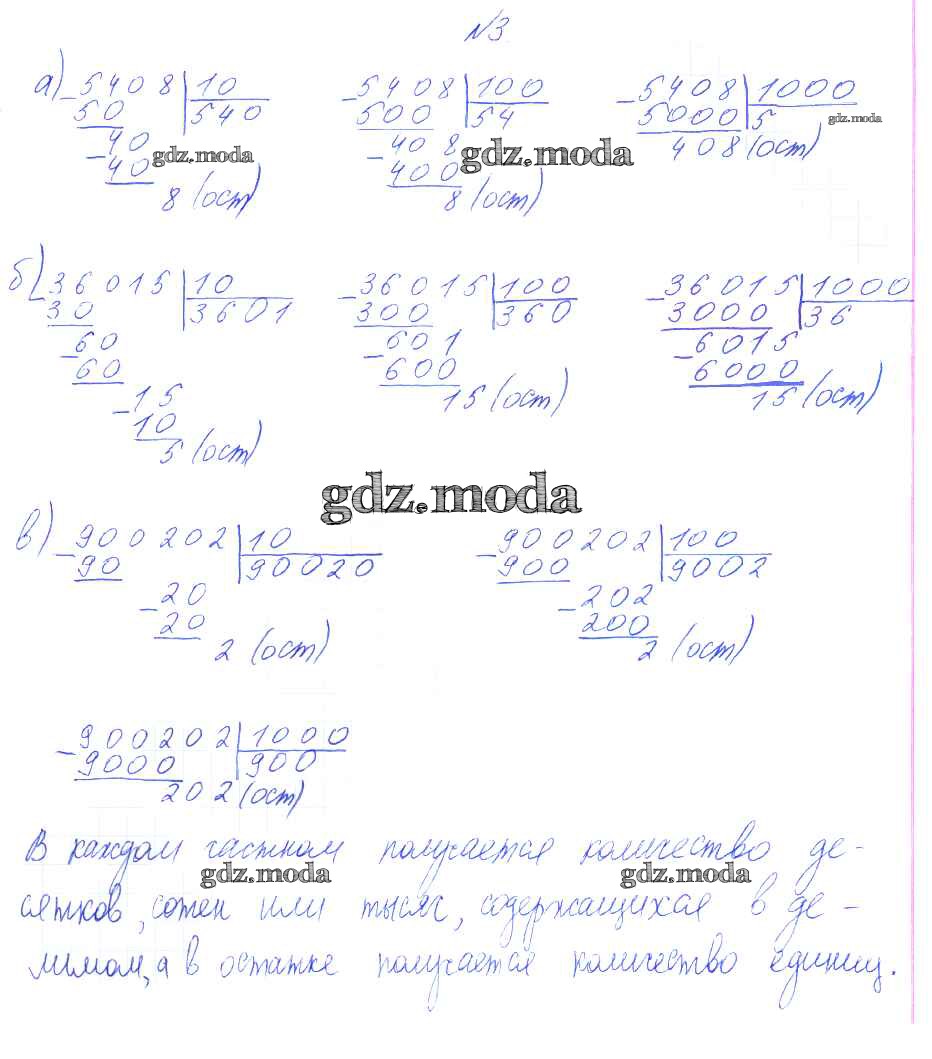 №3
а) 5408 | 10   5408 | 100   5408 | 1000
50 | 540   500 | 54   5000 | 5 gdz.moda
40   408   408 (ост)
40   400
gdz.moda   gdz.moda
8 (ост)   8 (ост)
б) 36015 | 10   36015 | 100   36015 | 1000
30 | 3601   300 | 360   3000 | 36
60   601   6015
60   600   6000
15   15 (ост)   15 (ост)
10
5 (ост)
gdz.moda
в) 900202 | 10   900202 | 100
90 | 90020   900 | 9002
20   202
20   200
2 (ост)   2 (ост)
900202 | 1000
9000 | 900
202 (ост)
В каждом частном получается количество де-
gdz.moda   gdz.moda
сятков, сотен или тысяч, содержащихся в де-
лимом, а в остатке получается количество единиц.